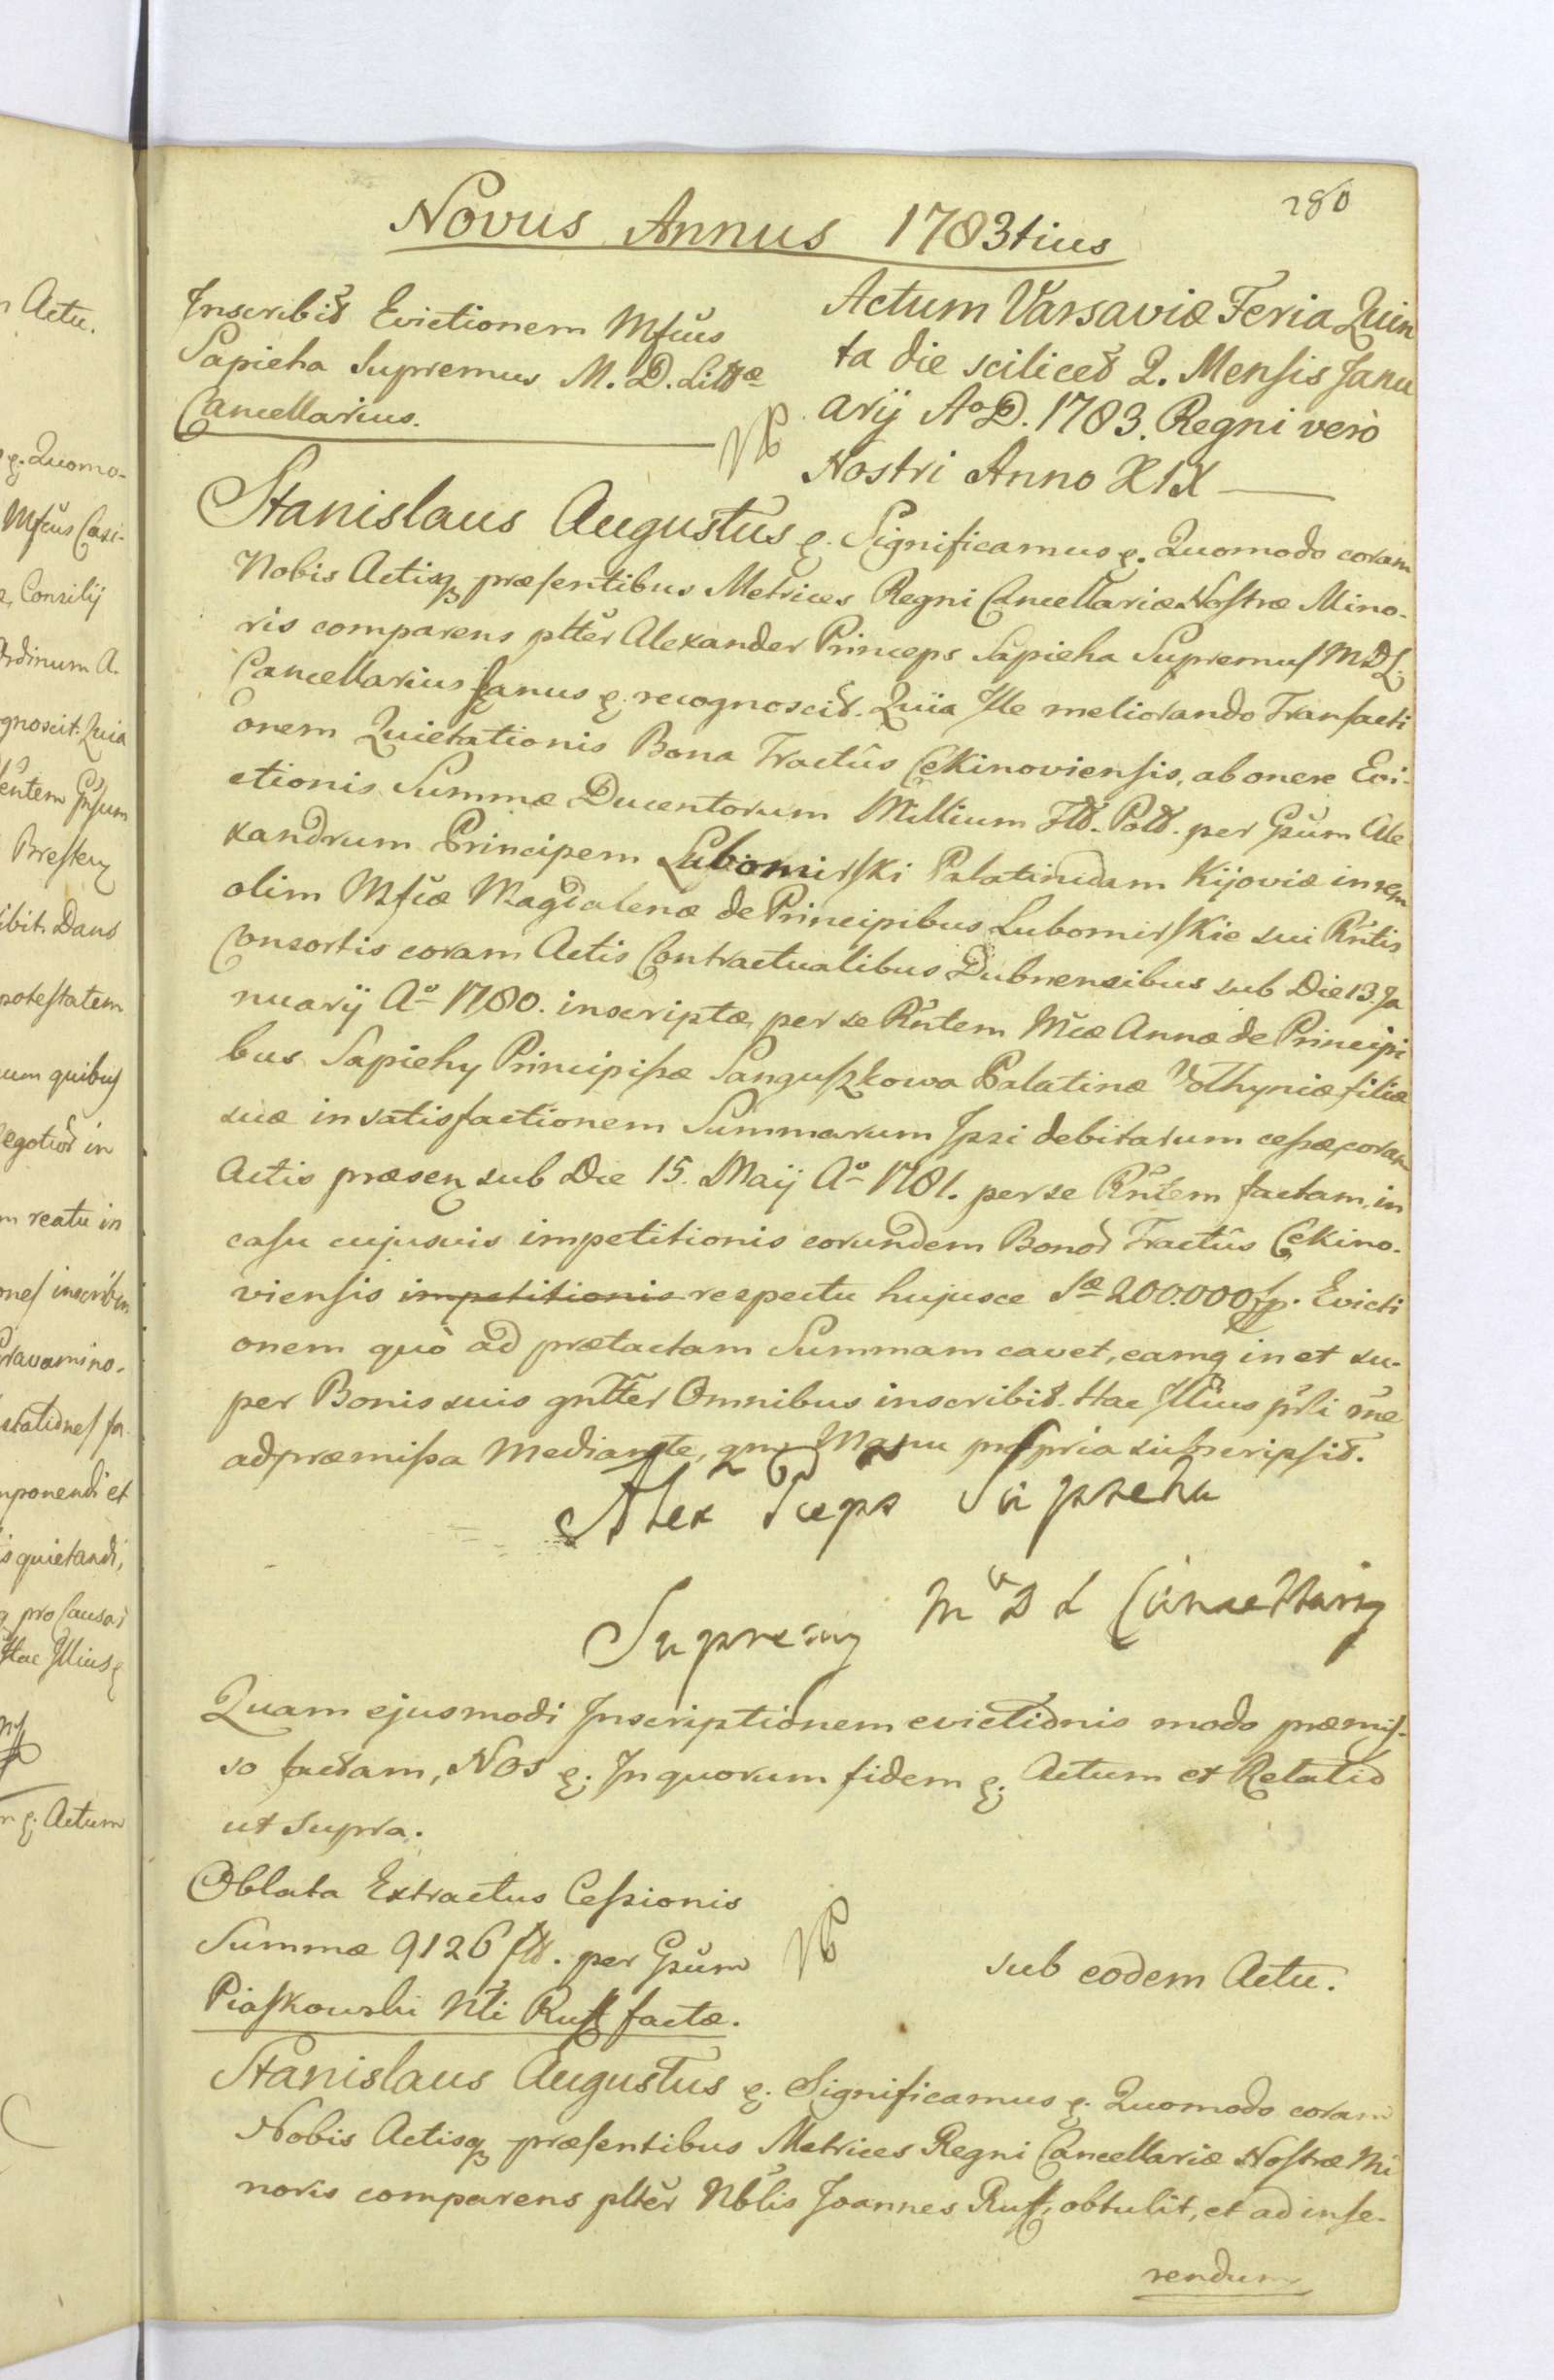 280
Novus Annus 1783tius
Inscribit Evictionem Mfcus
Sapieha Supremus M. D. Littæ
Cancellarius.
Actum Varsaviæ Feria Quin
ta die scilicet 2. Mensis Janu
arij Ao D. 1783. Regni verò
Nostri Anno XIX
Stanislaus Augustus &. Significamus &. Quomodo coram
Nobis Actisq præsentibus Metrices Regni Cancellariæ Nostræ Mino-
ris comparens plter Alexander Princeps Sapieha Supremus M.D.L.
Cancellarius sanus &. recognoscit. Quia Ille meliorando Transacti
onem Quietationis Bona Tractûs Cekinoviensis, ab onere Evi-
ctionis Summæ Ducentorum Millium Fld. Pold. per Gsum Ale
xandrum Principem Lubomirski Palatinidam Kijoviæ in rem
olim Mfcæ Magdalenæ de Principibus Lubomirskie sui Rntis
Consortis coram Actis Contractualibus Dubnensibus sub Die 13. Ja
nuarij Ao 1780. inscriptæ, per se Rntem Mcæ Annæ de Principi
bus Sapiehy Principissæ Sanguszkowa Palatinæ Volhyniæ filiæ
suæ in satisfactionem Summarum Ipsi debitarum cessæ, coram
Actis præsen sub Die 15. Maij Ao 1781. per se Rntem factam, in
casu cujusvis impetitionis eorundem Bonor Tractûs Cekino-
viensis impetitionis respectu hujusce Sæ 200.000 fp. Evicti
onem quò ad prætactam Summam cavet, eamq in et su-
per Bonis suis gnlter Omnibus inscribit. Hac Illius prli one
ad præmissa Mediante, qm Manu propria subscripsit.
Alex Pceps Sapieha
Supremy M D L Cancellariy
Quam ejusmodi Inscriptionem evictionis modo præmis-
so factam, Nos &. In quorum fidem &. Actum et Relatio
ut supra.
Oblata Extractus Cessionis
Summæ 9126 fld. per Gsum
Piaskowski Nti Rust factæ.
sub eodem Actu.
Stanislaus Augustus &. Significamus &. Quomodo coram
Nobis Actisq præsentibus Metrices Regni Cancellariæ Nostræ Mi
noris comparens plter Nblis Joannes Rust, obtulit, et ad inse-
rendum